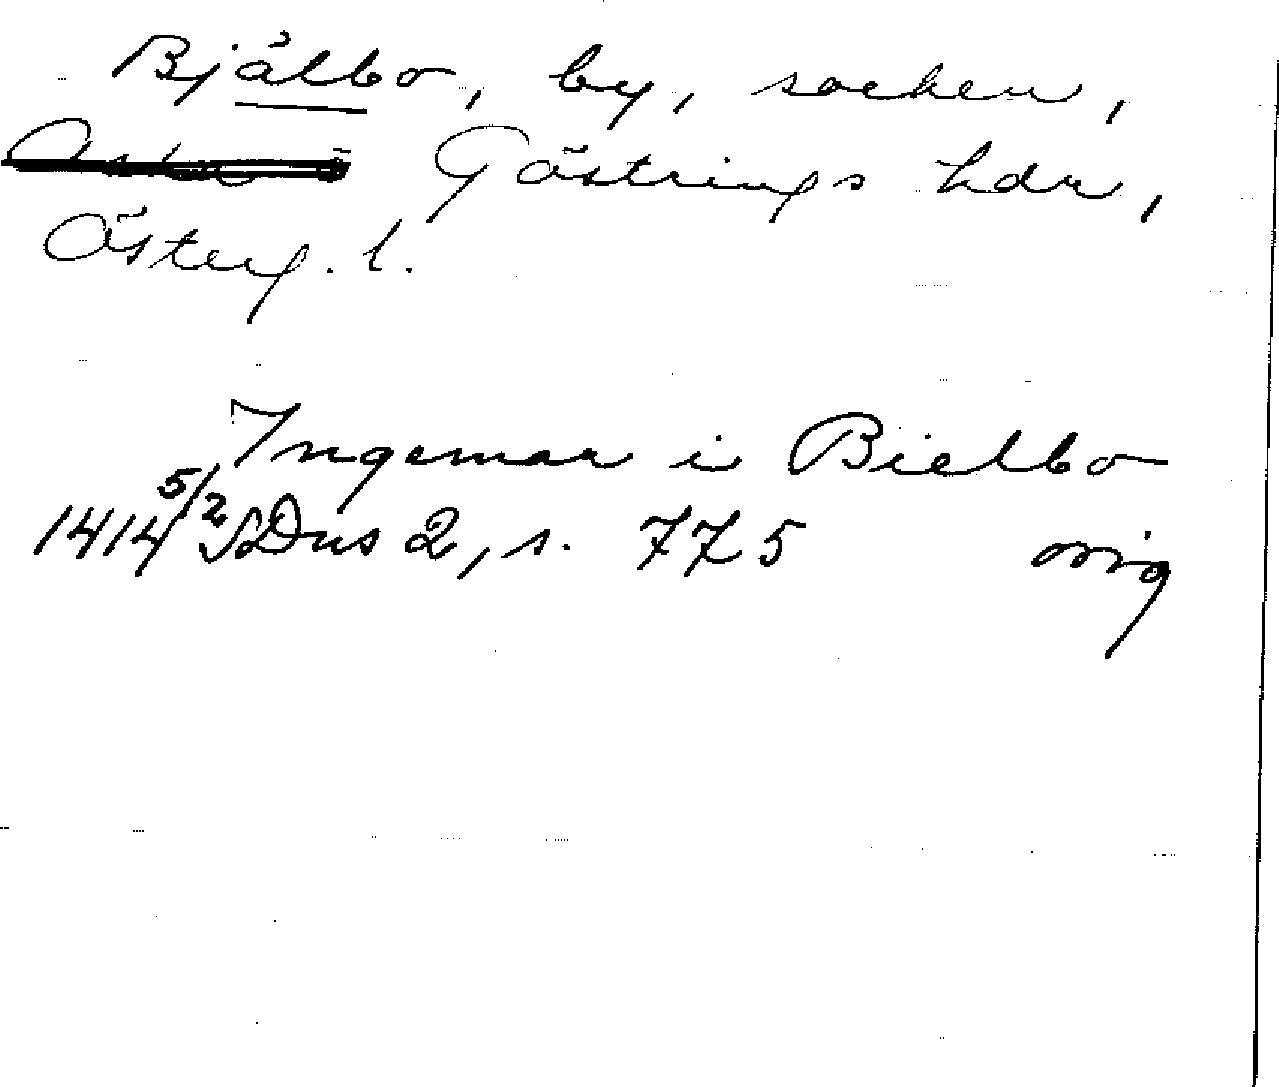 Bjälbo, by, socken,
Göstrings hdr,
Österg. l.
Ingemar i Bielbo
1414 5/2 SDns 2, s. 775 orig